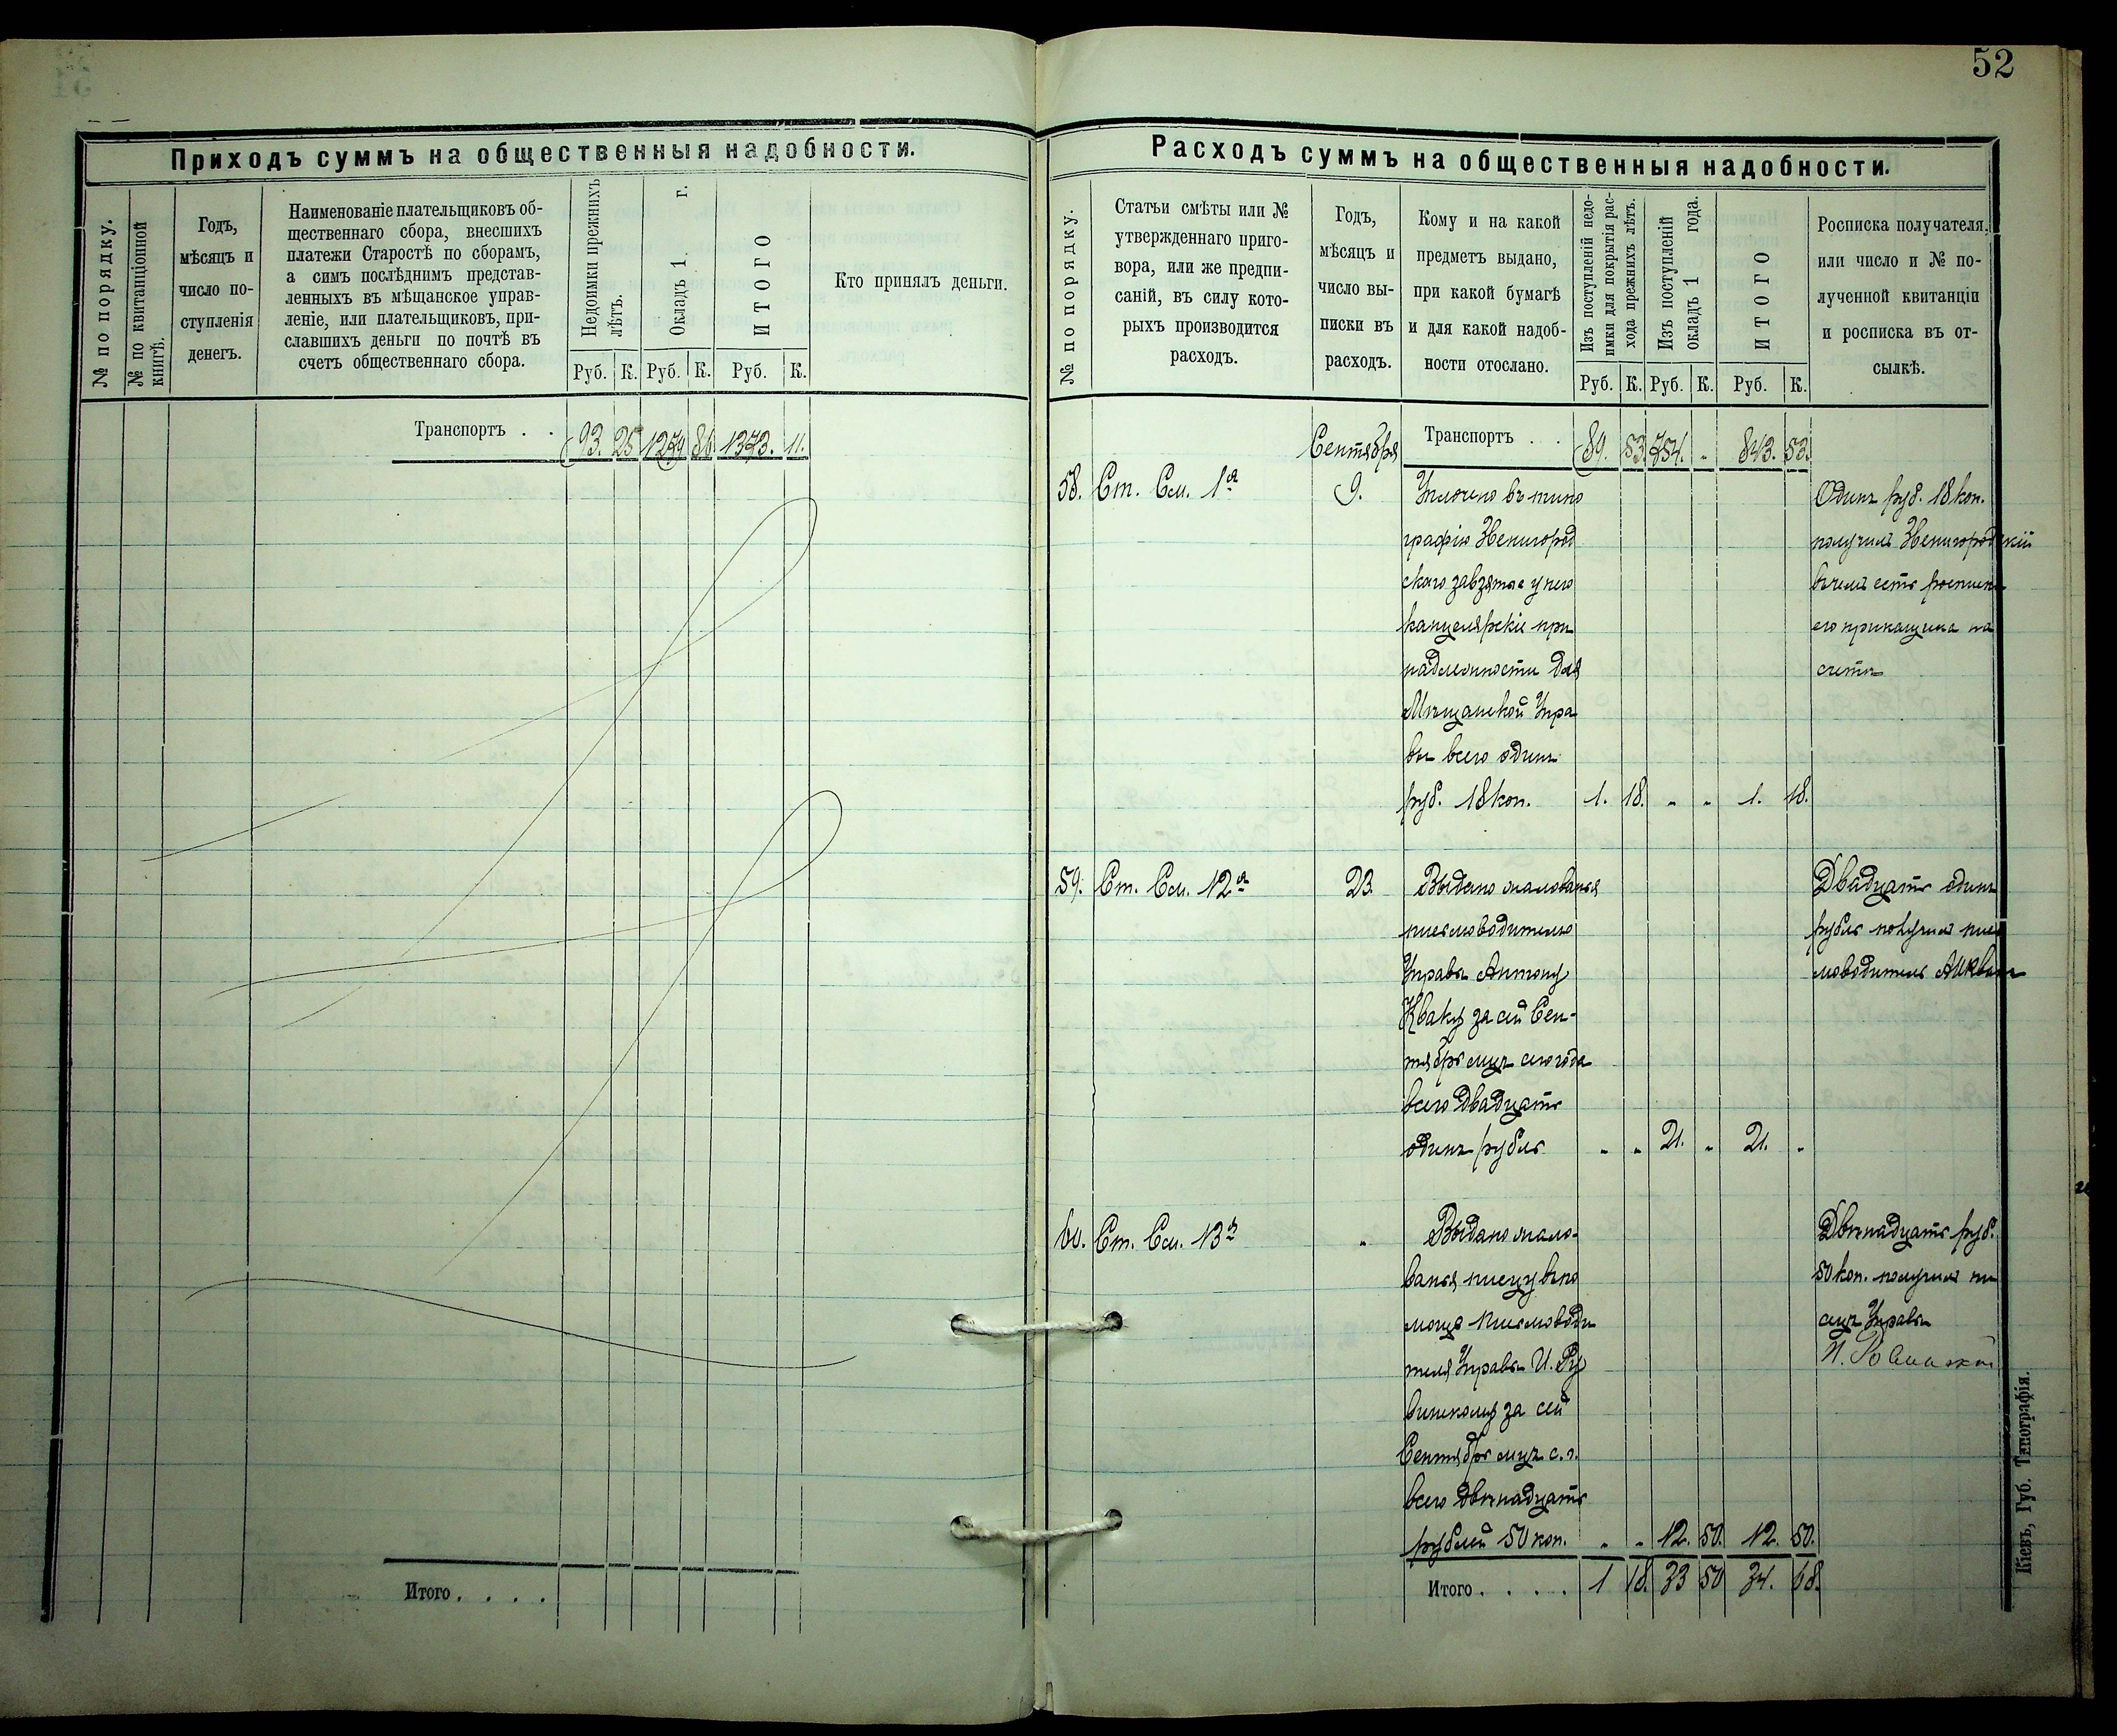 52
Приходъ суммъ на общественныя надобности.
№ по порядку.
№ по квитанціонной
книгѣ.
Годъ,
мѣсяцъ и
число по-
ступленія
денегъ.
Наименованіе плательщиковъ об-
щественнаго сбора, внесшихъ
платежи Старостѣ по сборамъ,
а симъ послѣднимъ представ-
ленныхъ въ мѣщанское управ-
леніе, или плательщиковъ, при-
славшихъ деньги по почтѣ въ
счетъ общественнаго сбора.
Недоимки прежнихъ
лѣтъ.
Окладъ 1 г.
ИТОГО
Руб. К. Руб. К. Руб. К.
Кто принялъ деньги.
Транспортъ . . 93. 25 1279 86. 1373. 11.
Итого . . . .
Расходъ суммъ на общественныя надобности.
№ по порядку.
Статьи смѣты или №
утвержденнаго приго-
вора, или же предпи-
саній, въ силу кото-
рыхъ производится
расходъ.
Годъ,
мѣсяцъ и
число вы-
писки въ
расходъ.
Кому и на какой
предметъ выдано,
при какой бумагѣ
и для какой надоб-
ности отослано.
Изъ поступленій недо-
имки для покрытія рас-
хода прежнихъ лѣтъ.
Изъ поступленій
окладъ 1 года.
ИТОГО
Руб. К. Руб. К. Руб. К.
Росписка получателя,
или число и № по-
лученной квитанціи
и росписка въ от-
сылкѣ.
Сентября Транспортъ . . . 89. 53. 754. „ 843. 53.
58. Ст. См. 1я 9.
Уплочено въ типо
графію Звенигород
скаго за взятые у него
канцелярскіе при
надлежности для
Мѣщанской Упра
вы всего одинъ
руб. 18 коп. 1. 18. „ „ 1. 18.
Одинъ руб. 18 коп.
получилъ Звенигородскій
въ чемъ есть росписка
его прикащика на
счетѣ
59. Ст. См. 12я 23.
Выдано жалованья
письмоводителю
Управы Антону
Кваку за сей Сен-
тябрь мцъ сего года
всего двадцать
одинъ рубль „ „ 21. „ 21. „
Двадцать одинъ
рубль получилъ пись
моводитель
60. Ст. См. 13я „
Выдано жало-
ванья писцу въ по
мощь письмоводи
теля Управы И. Ру
винскому за сей
Сентябрь мцъ с. г.
всего двѣнадцать
рублей 50 коп. „ „ 12. 50. 12. 50.
Двѣнадцать руб.
50 коп. получилъ пи
сецъ Управы
Итого . . . . 1 18. 33 50 34. 68.
Кіевъ, Губ. Типографія.